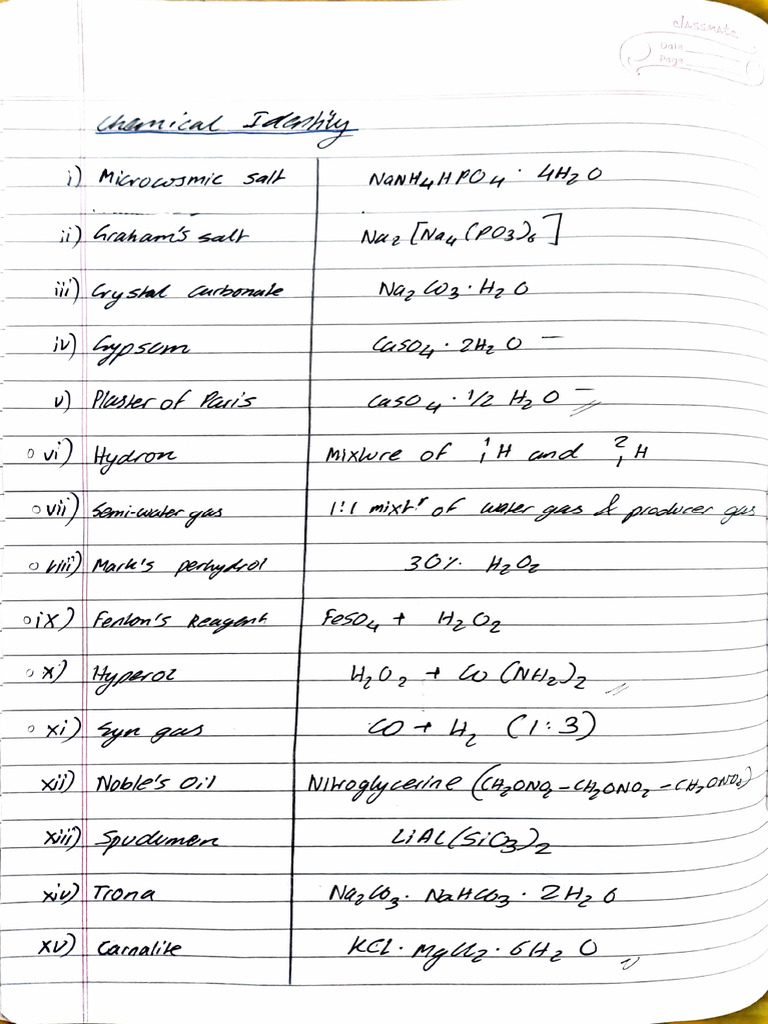 classmate
Date
Page
Chemical Identity
i) Microcosmic salt NaNH₄HPO₄ · 4H₂O
ii) Graham's salt Na₂[Na₄(PO₃)₆]
iii) Crystal carbonate Na₂CO₃ · H₂O
iv) Gypsum CaSO₄ · 2H₂O
v) Plaster of Paris CaSO₄ · 1/2 H₂O
vi) Hydron Mixture of ¹₁H and ²₁H
vii) Semi-water gas 1:1 mixtʳ of water gas & producer gas
viii) Mark's perhydrol 30% H₂O₂
ix) Fenton's Reagent FeSO₄ + H₂O₂
x) Hyperol H₂O₂ + CO(NH₂)₂
xi) Syn gas CO + H₂ (1:3)
xii) Noble's Oil Nitroglycerine (CH₂ONO₂–CH₂ONO₂–CH₂ONO₂)
xiii) Spudumen LiAl(SiO₃)₂
xiv) Trona Na₂CO₃ · NaHCO₃ · 2H₂O
xv) Carnalite KCl · MgCl₂ · 6H₂O